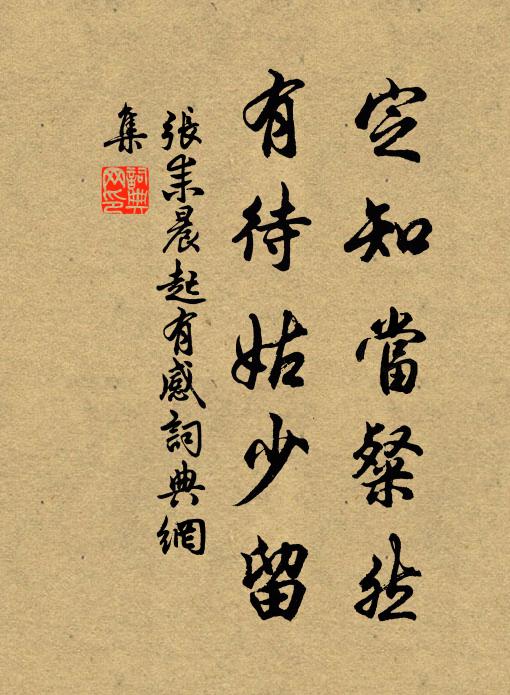 定知當粲然
有待姑少留
張耒晨起有感詞典網
集
詞典網印